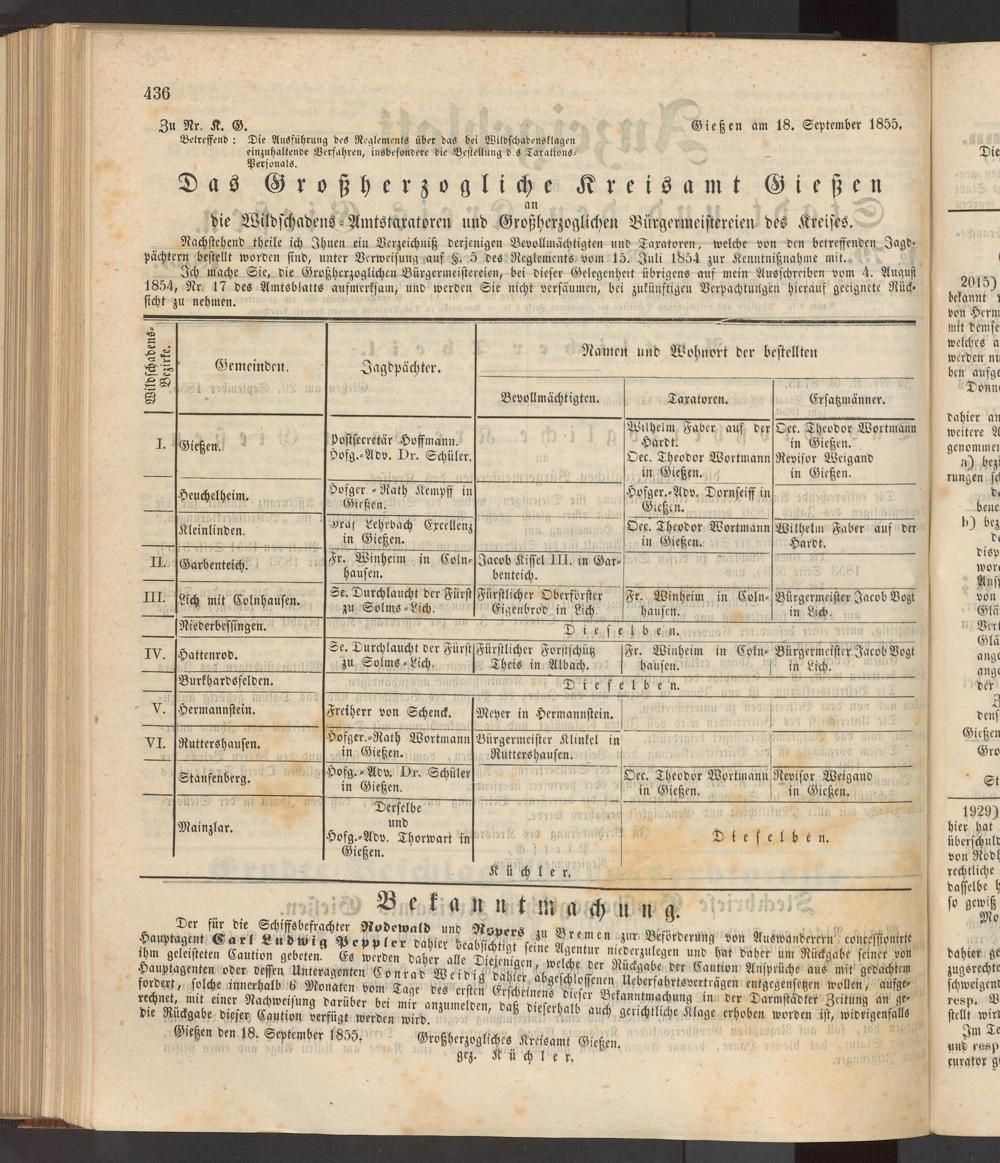 436
Zu Nr. K. G.
Gießen am 18. September 1855.
Betreffend: Die Ausführung des Reglements über das bei Wildschadensklagen
einzuhaltende Verfahren, insbesondere die Bestellung d s Taxations-
Personals.
Das Großherzogliche Kreisamt Gießen
an
die Wildschadens-Amtstaxatoren und Großherzoglichen Bürgermeistereien des Kreises.
Nachstehend theile ich Ihnen ein Verzeichniß derjenigen Bevollmächtigten und Taxatoren, welche von den betreffenden Jagd-
pächtern bestellt worden sind, unter Verweisung auf §. 5 des Reglements vom 15. Juli 1854 zur Kenntnißnahme mit.
Ich mache Sie, die Großherzoglichen Bürgermeistereien, bei dieser Gelegenheit übrigens auf mein Ausschreiben vom 4. August
1854, Nr. 17 des Amtsblatts aufmerksam, und werden Sie nicht versäumen, bei zukünftigen Verpachtungen hierauf geeignete Rück-
sicht zu nehmen.
Wildschadens-
Bezirke.
Gemeinden.
Jagdpächter.
Namen und Wohnort der bestellten
Bevollmächtigten.
Taxatoren.
Ersatzmänner.
I.
Gießen.
Postsecretär Hoffmann.
Hofg.-Adv. Dr. Schüler.
Wilhelm Faber auf der
Hardt.
Oec. Theodor Wortmann
in Gießen.
Oec. Theodor Wortmann
in Gießen.
Revisor Weigand
in Gießen.
Heuchelheim.
Hofger.-Rath Kempff in
Gießen.
Hofger.-Adv. Dornseiff in
Gießen.
Kleinlinden.
Graf Lehrbach Excellenz
in Gießen.
Oec. Theodor Wortmann
in Gießen.
Wilhelm Faber auf der
Hardt.
II.
Garbenteich.
Fr. Winheim in Coln-
hausen.
Jacob Kissel III. in Gar-
benteich.
III.
Lich mit Colnhausen.
Se. Durchlaucht der Fürst
zu Solms-Lich.
Fürstlicher Oberförster
Eigenbrod in Lich.
Fr. Winheim in Coln-
hausen.
Bürgermeister Jacob Vogt
in Lich.
Niederbessingen.
Dieselben.
IV.
Hattenrod.
Se. Durchlaucht der Fürst
zu Solms-Lich.
Fürstlicher Forstschütz
Theis in Albach.
Fr. Winheim in Coln-
hausen.
Bürgermeister Jacob Vogt
in Lich.
Burkhardsfelden.
Dieselben.
V.
Hermannstein.
Freiherr von Schenck.
Meyer in Hermannstein.
VI.
Ruttershausen.
Hofger.-Rath Wortmann
in Gießen.
Bürgermeister Klinkel in
Ruttershausen.
Staufenberg.
Hofg.-Adv. Dr. Schüler
in Gießen.
Oec. Theodor Wortmann
in Gießen.
Revisor Weigand
in Gießen.
Mainzlar.
Derselbe
und
Hofg.-Adv. Thorwart in
Gießen.
Dieselben.
Küchler.
Bekanntmachung.
Der für die Schiffsbefrachter Rodewald und Ropers zu Bremen zur Beförderung von Auswanderern concessionirte
Hauptagent Carl Ludwig Peppler dahier beabsichtigt seine Agentur niederzulegen und hat daher um Rückgabe seiner von
ihm geleisteten Caution gebeten. Es werden daher alle Diejenigen, welche der Rückgabe der Caution Ansprüche aus mit gedachtem
Hauptagenten oder dessen Unteragenten Conrad Weidig dahier abgeschlossenen Ueberfahrtsverträgen entgegensetzen wollen, aufge-
fordert, solche innerhalb 6 Monaten vom Tage des ersten Erscheinens dieser Bekanntmachung in der Darmstädter Zeitung an ge-
rechnet, mit einer Nachweisung darüber bei mir anzumelden, daß dieserhalb auch gerichtliche Klage erhoben worden ist, widrigenfalls
die Rückgabe dieser Caution verfügt werden wird.
Gießen den 18. September 1855.
Großherzogliches Kreisamt Gießen.
gez. Küchler.